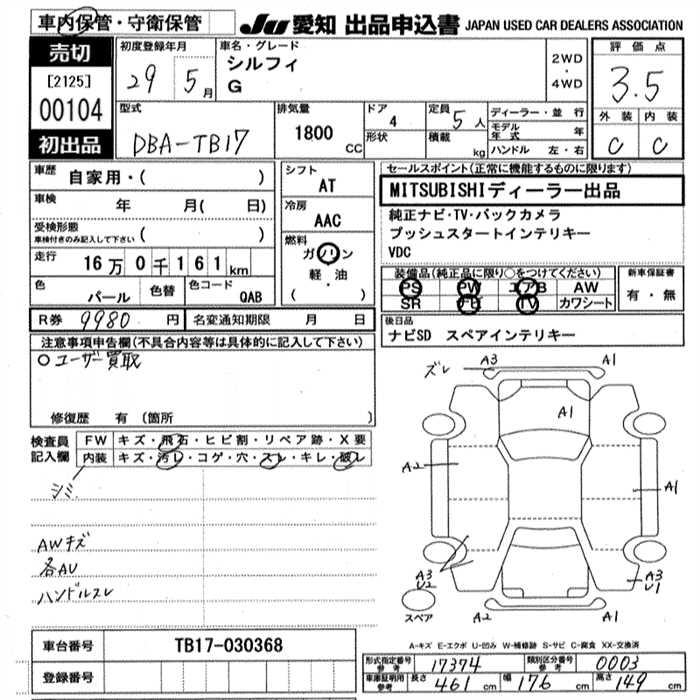 車内保管・守衛保管
JU 愛知 出品申込書 JAPAN USED CAR DEALERS ASSOCIATION
売切
[2125]
00104
初出品
初度登録年月
29年 5月
車名・グレード
シルフィ
G
2WD
・
4WD
評価点
3.5
外装 内装
C C
型式
DBA-TB17
排気量
1800 CC
ドア
4
形状
定員 5人
積載 kg
ディーラー・並行
モデル年式 年
ハンドル 左・右
車歴 自家用・( )
車検 年 月( 日)
受検形態
車検付きのみ記入して下さい ( )
走行 16万0千161km
色 パール 色替 色コード QAB
シフト
AT
冷房
AAC
燃料
ガソリン
軽・油
( )
セールスポイント(正常に機能するものに限ります)
MITSUBISHIディーラー出品
純正ナビ・TV・バックカメラ
プッシュスタートインテリキー
VDC
装備品(純正品に限り○をつけてください)
PS PW エアB AW
SR TV カワシート
新車保証書
有・無
R券 9980 円 名変通知期限 月 日
後日品
ナビSD スペアインテリキー
注意事項申告欄(不具合内容等は具体的に記入して下さい)
○ユーザー買取
修復歴 有 (箇所 )
検査員
記入欄
FW キズ・飛石・ヒビ割・リペア跡・X要
内装 キズ・汚レ・コゲ・穴・スレ・キレ・破レ
シミ
AWキズ
各AU
ハンドルスレ
ズレ A3 A1
A1
A2 A1
A3
U2
A3
U1
スペア A2 A1
A-キズ E-エクボ U-凹み W-補修跡 S-サビ C-腐食 XX-交換済
車台番号 TB17-030368
登録番号
形式指定番号
参考 17374
類別区分番号
参考 0003
車庫証明用
参考 長さ 461 cm 幅 176 cm 高さ 149 cm